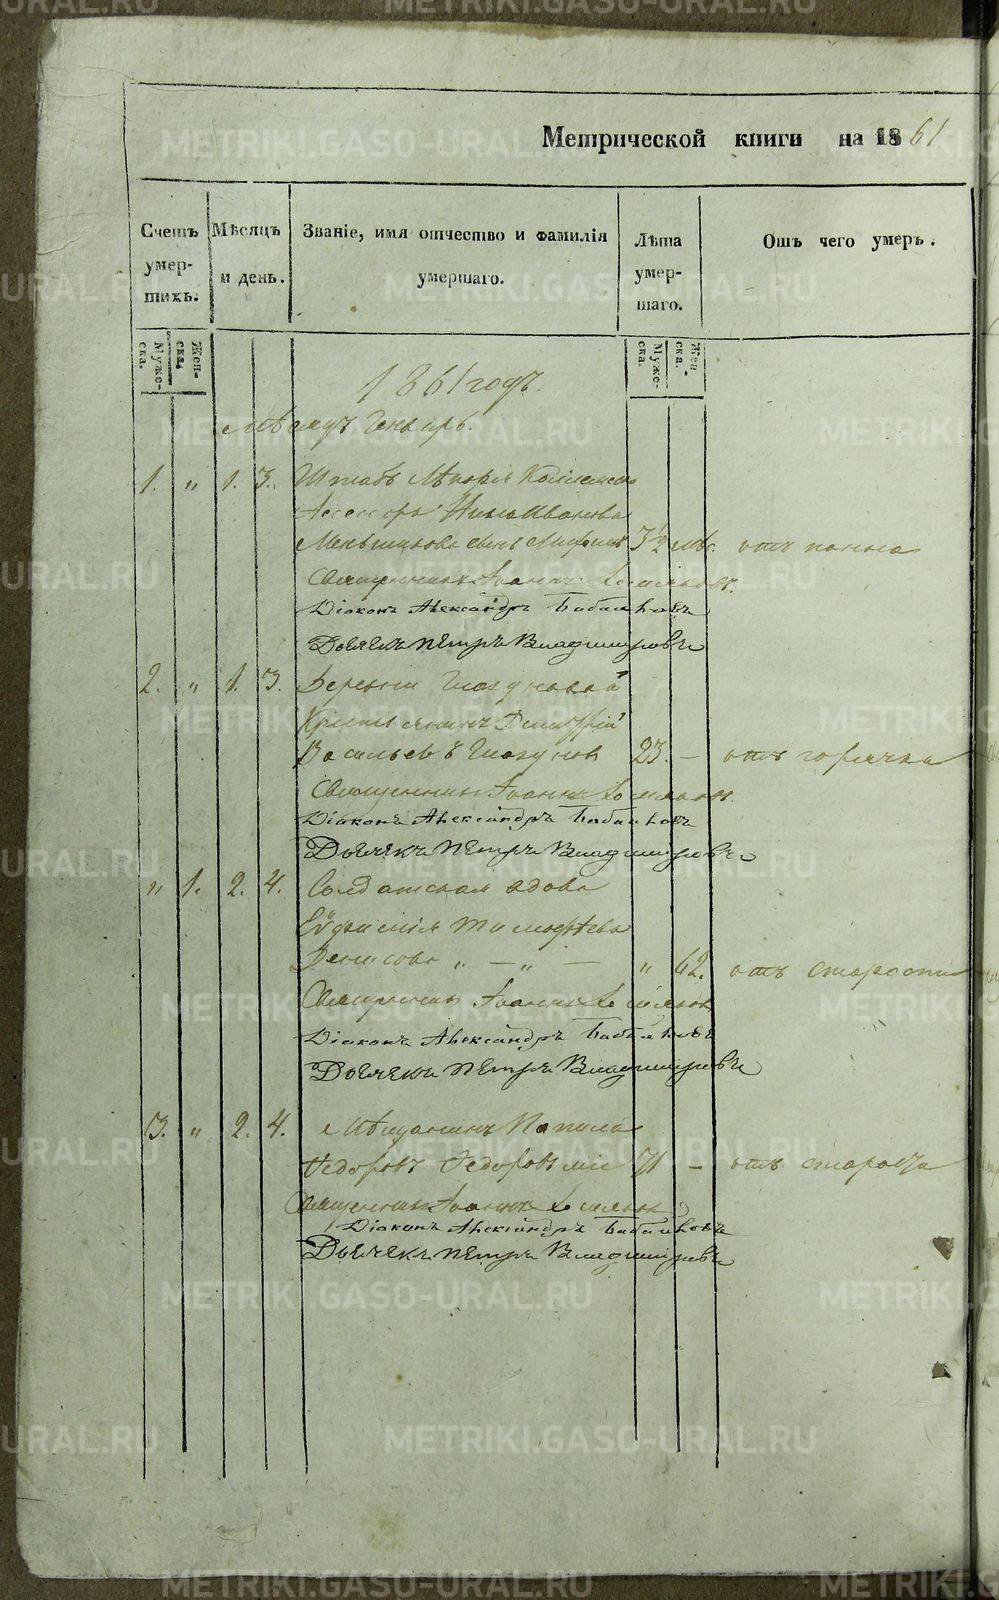 Метрической книги на 1861
Счетъ умер-шихъ.
Мѣсяцъ и день.
Званіе, имя отчество и фамилія умершаго.
Лѣта умер-шаго.
Отъ чего умеръ.
Муже-ска.
Жен-ска.
Муже-ска.
Жен-ска.
1861 годъ.
мѣсяцъ Генварь.
1. „ 1. 3. Штабъ Лѣкаря
Ассесора Ивановъ
3 1/2 мѣс. отъ поноса
Священникъ Іоаннъ
Діаконъ Александръ Бабайловъ
Дьячекъ Петръ Владимировъ
2. „ 1. 3. Деревни Глазуновой
Крестьянинъ Димитрій
Васильевъ Глазуновъ 23. — отъ горячки
Священникъ Іоаннъ
Діаконъ Александръ Бабайловъ
Дьячекъ Петръ Владимировъ
„ 1. 2. 4. Солдатская вдова
Евфимія Тимофѣева
Денисова „ — „ — „ 62. отъ старости
Священникъ Іоаннъ
Діаконъ Александръ Бабайловъ
Дьячекъ Петръ Владимировъ
3. „ 2. 4. Мѣщанинъ
Федоровъ 71 — отъ старости
Священникъ Іоаннъ
Діаконъ Александръ Бабайловъ
Дьячекъ Петръ Владимировъ
METRIKI.GASO-URAL.RU